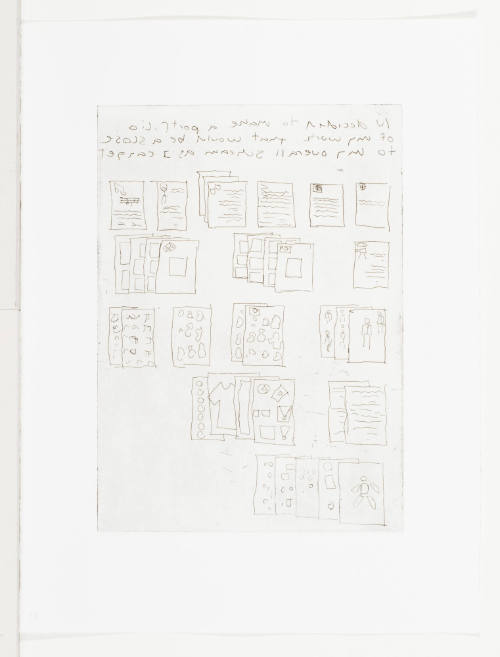 Iv decided to make a portfolio
of my work that would be as close
to my overall scheem as I can get